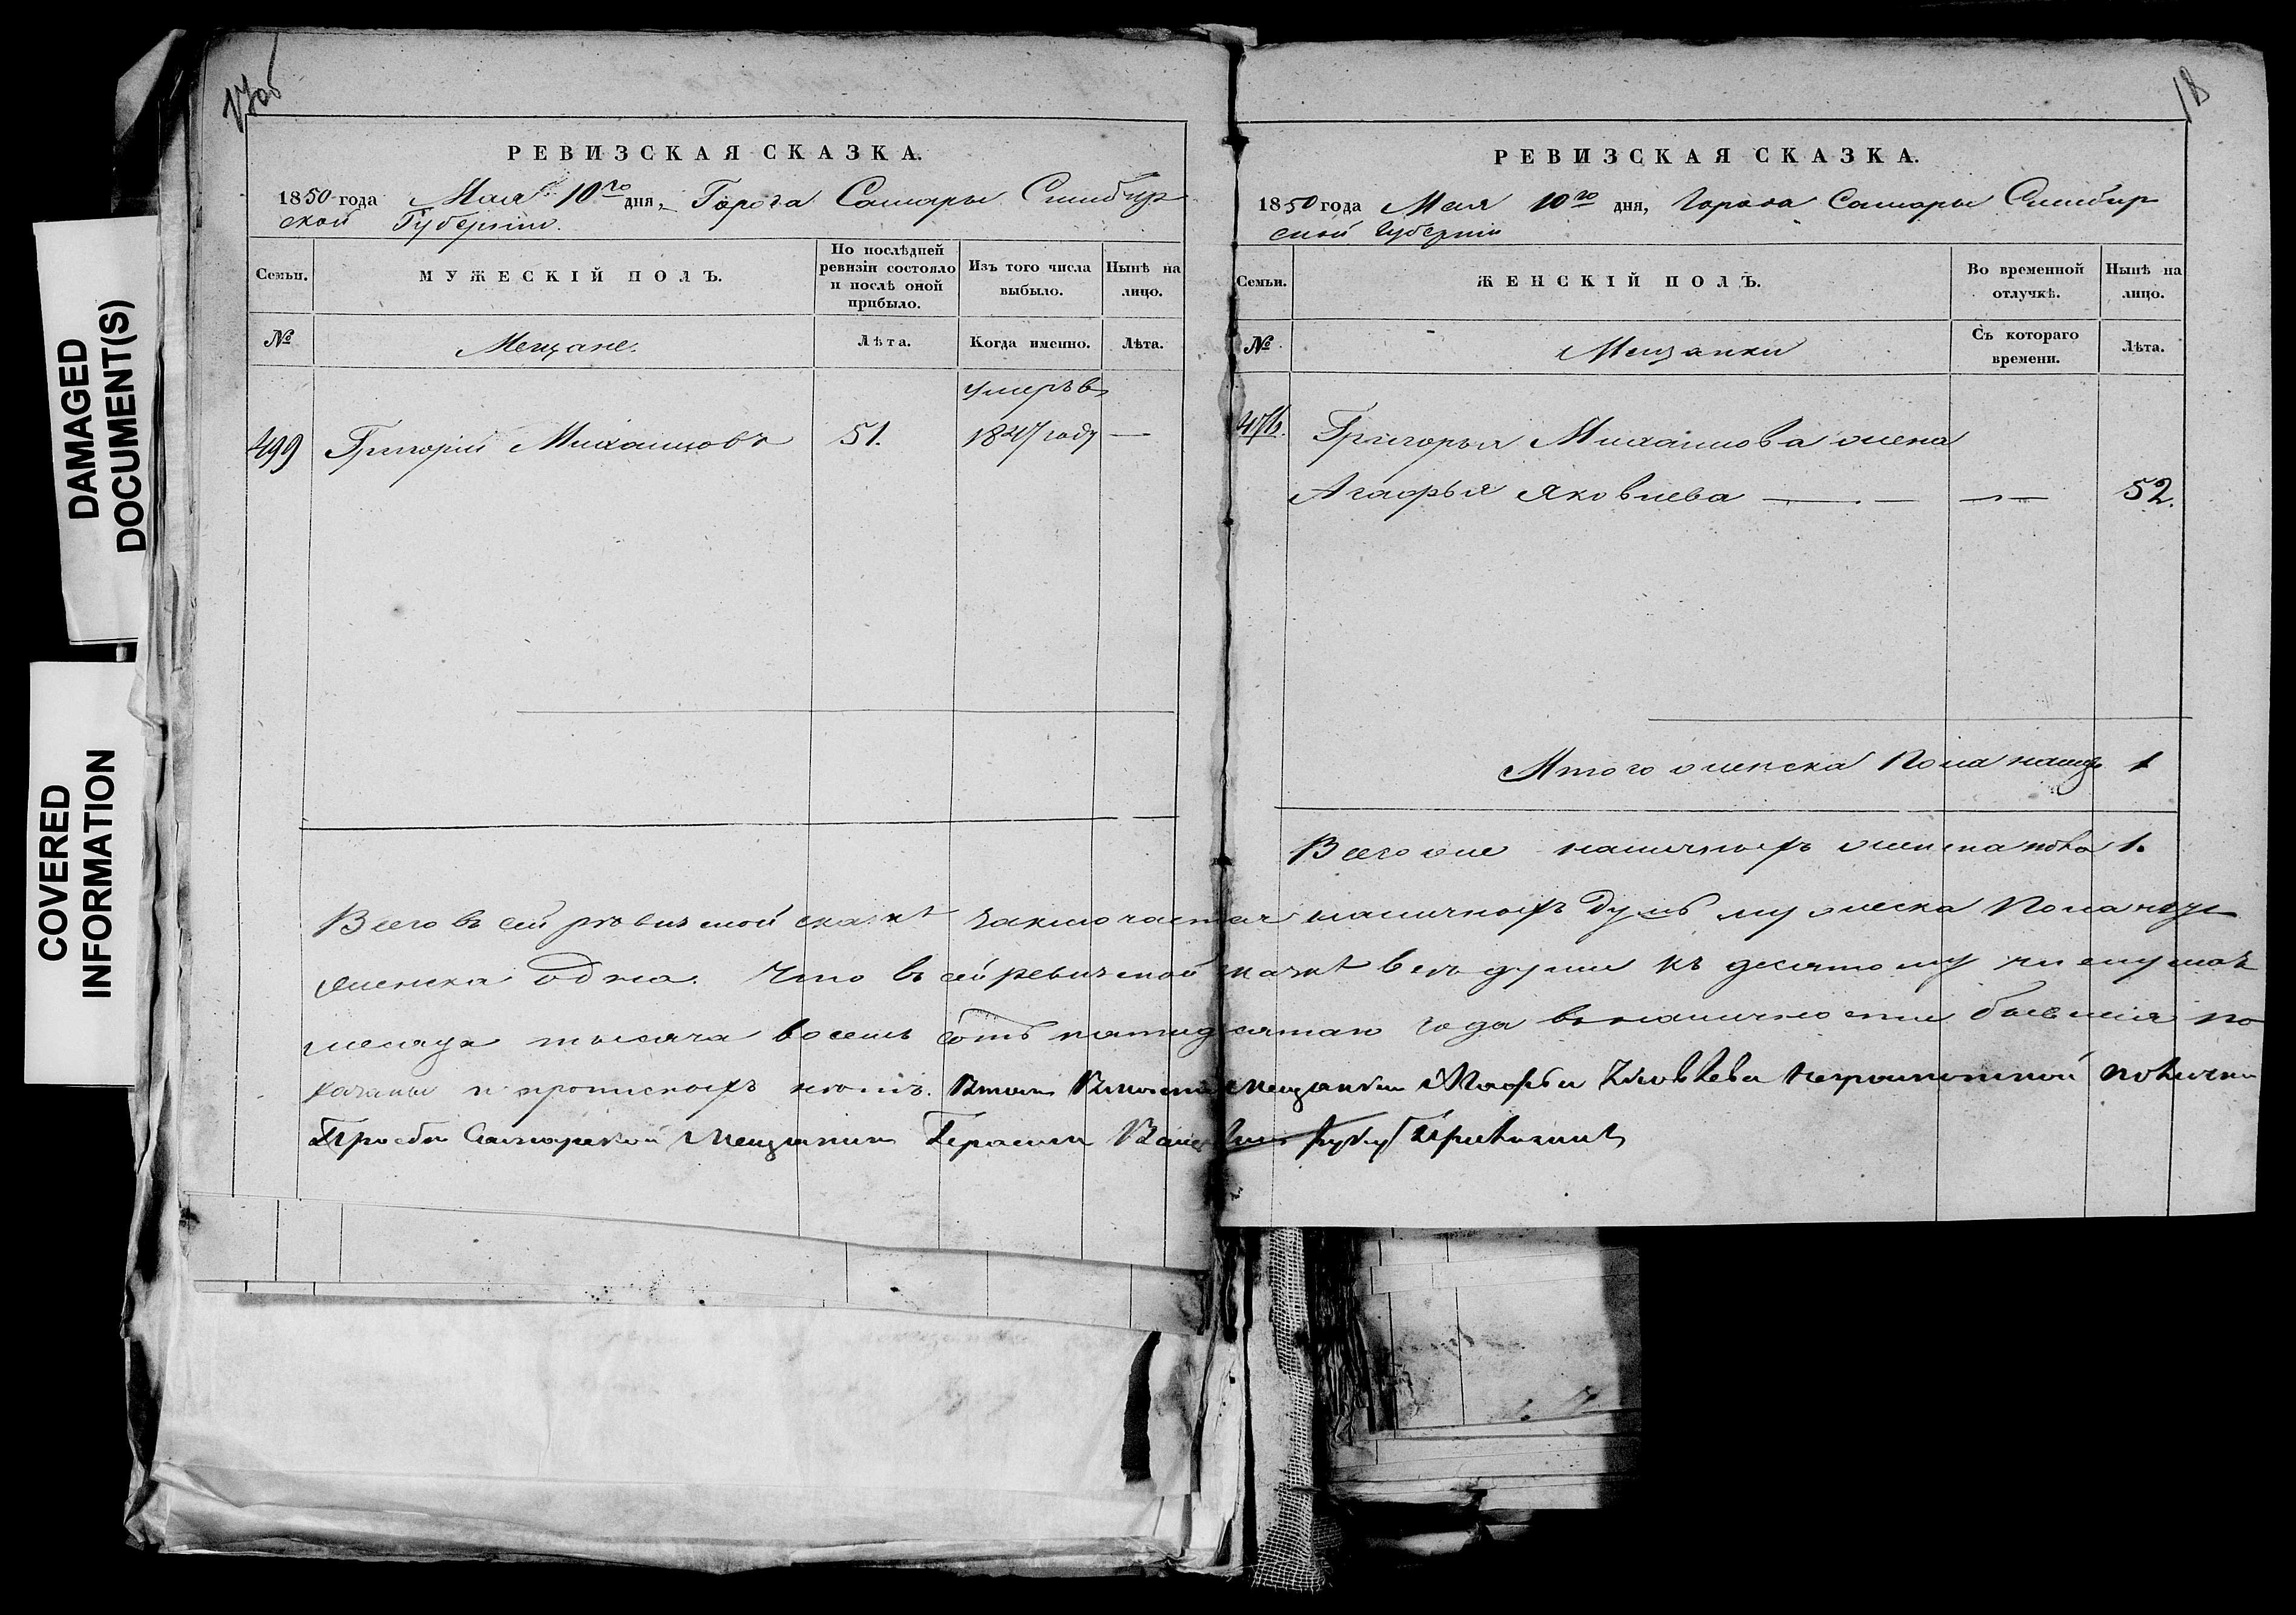 DAMAGED
DOCUMENT(S)
COVERED
INFORMATION
17об
РЕВИЗСКАЯ СКАЗКА.
1850 года Мая 10го дня, Города Самары Симбир
ской Губернии.
Семьи.
МУЖЕСКІЙ ПОЛЪ.
По послѣдней
ревизіи состояло
и послѣ оной
прибыло.
Изъ того числа
выбыло.
Нынѣ на
лицо.
№
Мещане.
Лѣта.
Когда именно.
Лѣта.
умеръ въ
499 Григорій Михаиловъ 51. 1847 году —
18
РЕВИЗСКАЯ СКАЗКА.
1850 года Мая 10го дня, Города Самары Симбир
ской Губерніи
Семьи.
ЖЕНСКІЙ ПОЛЪ.
Во временной
отлучкѣ.
Нынѣ на
лицо.
№
Мещанки
Съ котораго
времени.
Лѣта.
Григорья Михаилова жена
Агафья Яковлева — — 52.
Итого женска пола налицо 1
Всего же наличныхъ женска пола 1.
Всего въ сей ревизской сказкѣ заключается наличныхъ душъ мужеска пола
женска одна. Что въ сей ревизской сказкѣ всѣ души къ десятому числу мая
месяца тысяча восемь сотъ пятидесятаго года въ наличности бывшія по
казаны и прописныхъ нѣтъ. мещанки Агафьи Яковлевы неграмотной по личной
Просбе Самарской Мещанинъ Герасимъ руку приложилъ